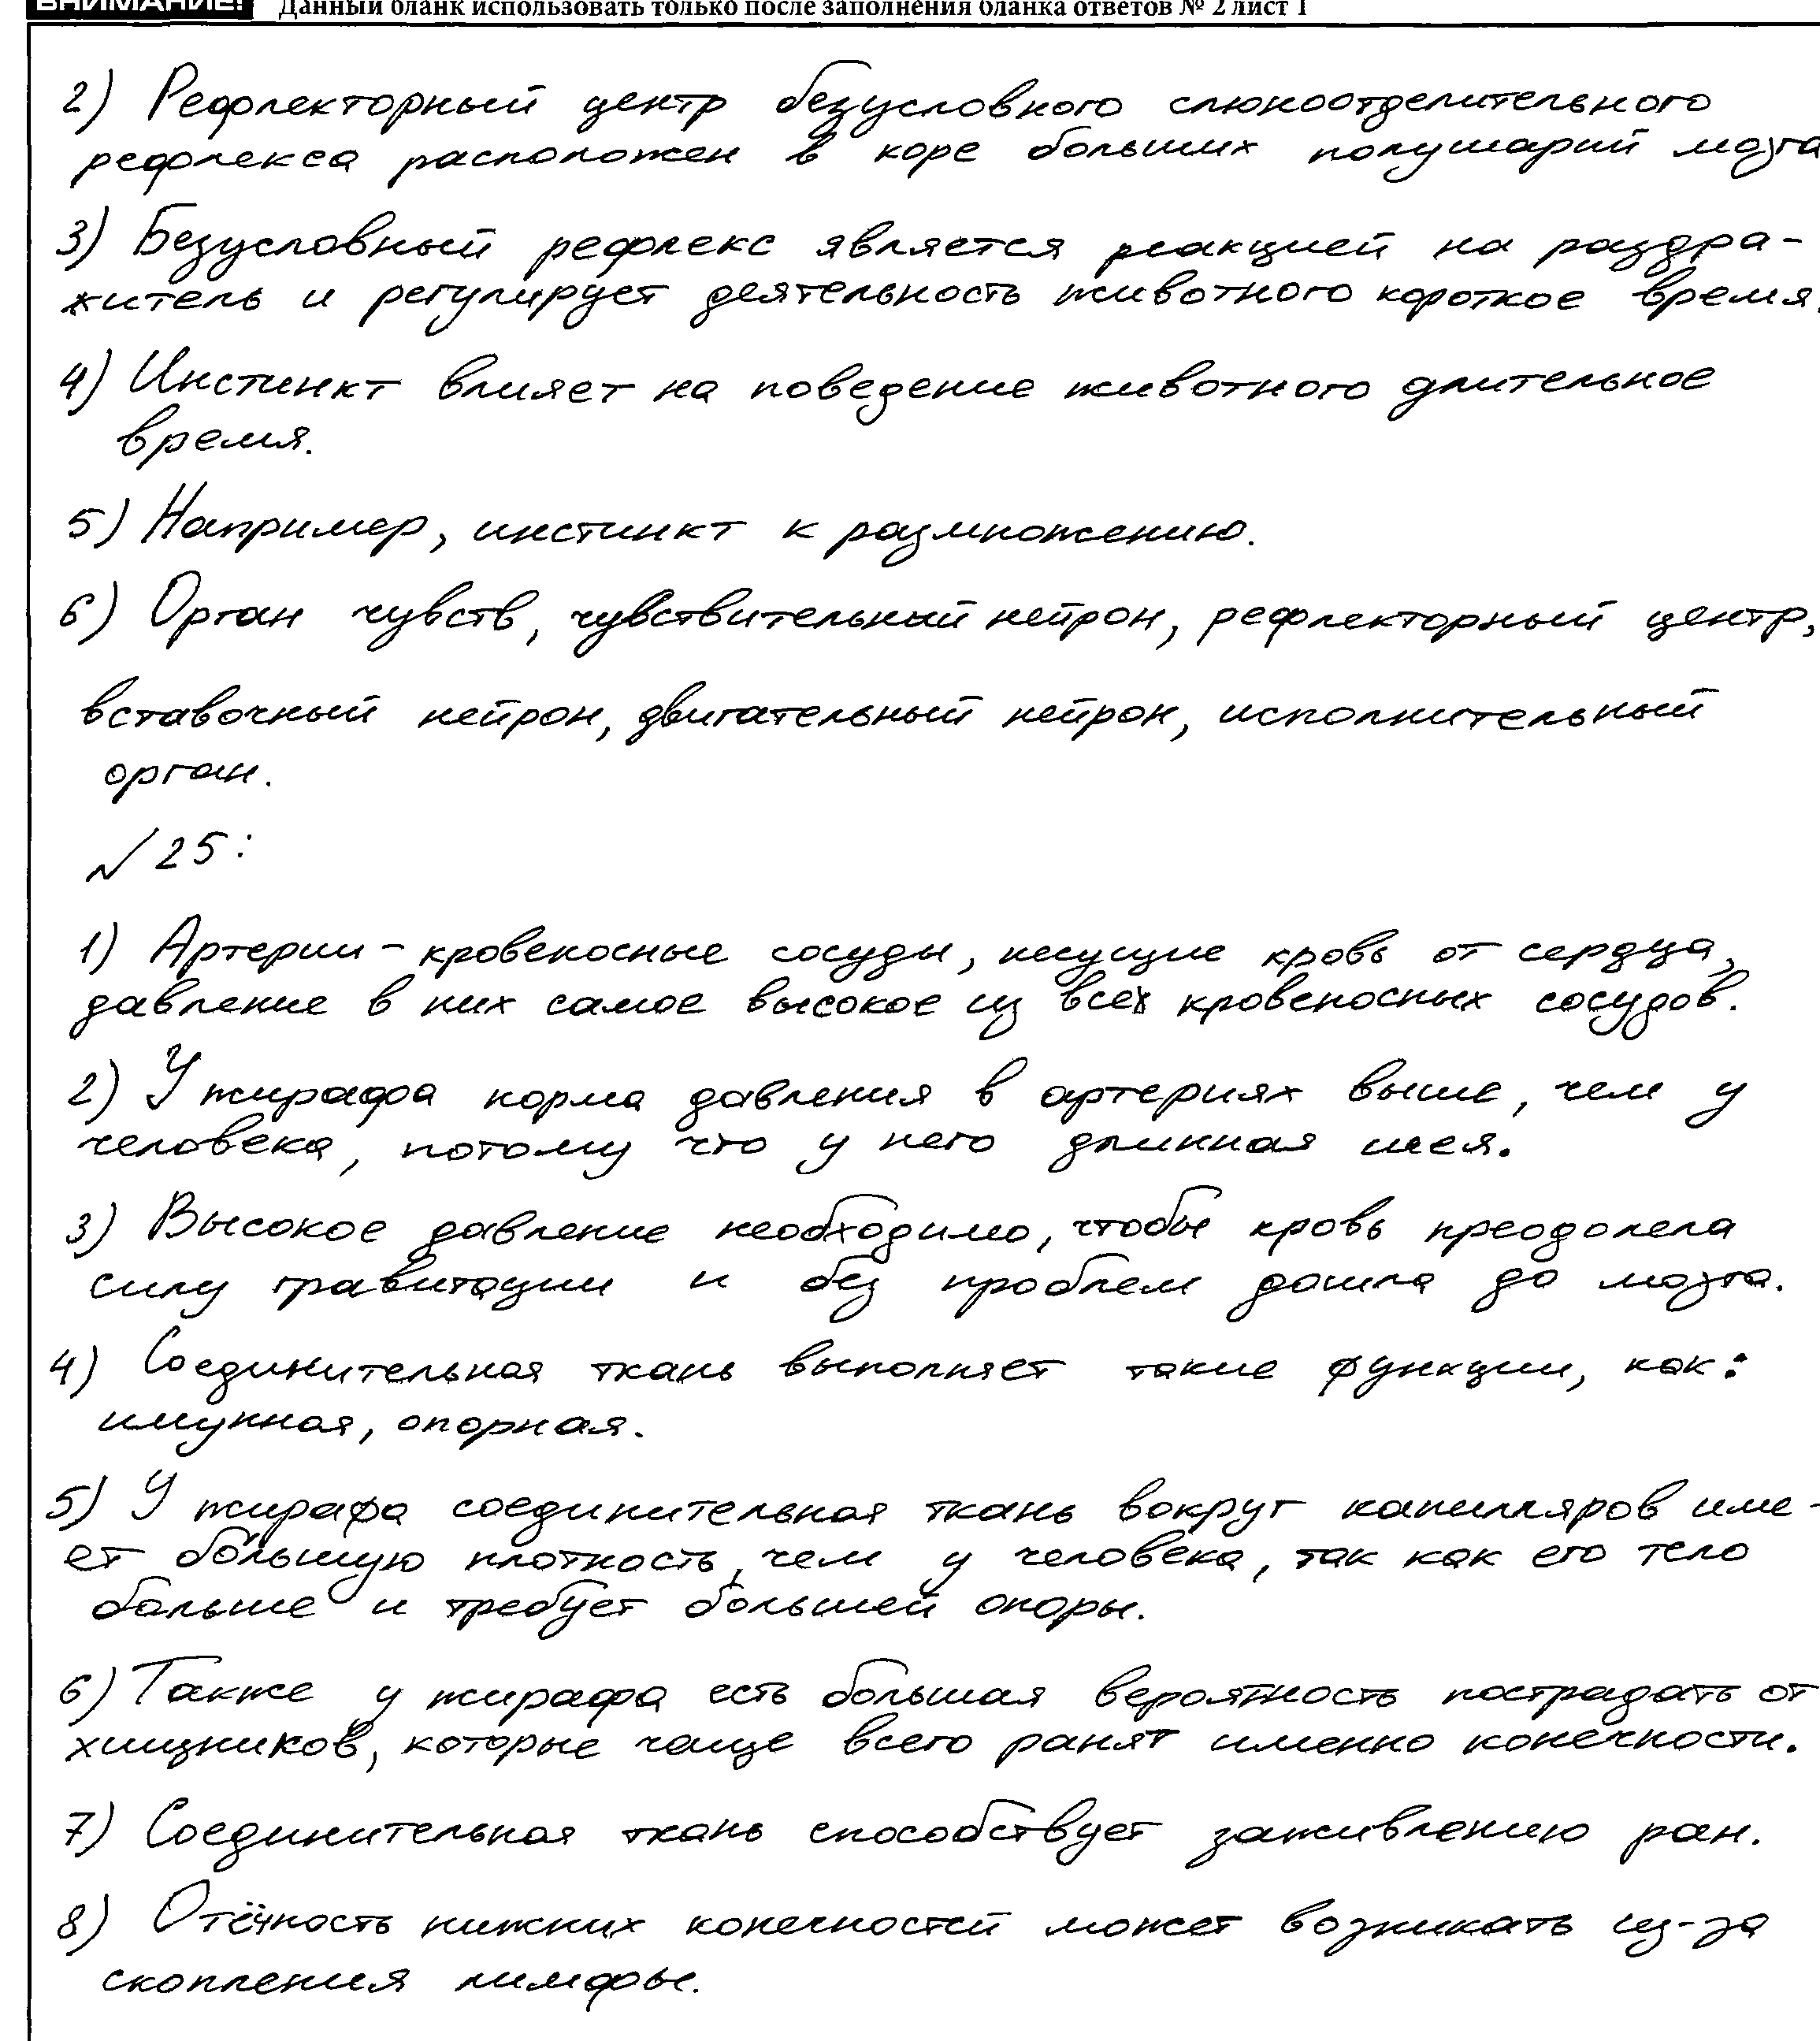 ВНИМАНИЕ! Данный бланк использовать только после заполнения бланка ответов № 2 лист 1
2) Рефлекторный центр безусловного слюноотделительного
рефлекса расположен в коре больших полушарий мозга
3) Безусловный рефлекс является реакцией на раздра-
житель и регулирует деятельность животного короткое время.
4) Инстинкт влияет на поведение животного длительное
время.
5) Например, инстинкт к размножению.
6) Орган чувств, чувствительный нейрон, рефлекторный центр,
вставочный нейрон, двигательный нейрон, исполнительный
орган.
№25:
1) Артерии - кровеносные сосуды, несущие кровь от сердца,
давление в них самое высокое из всех кровеносных сосудов.
2) У жирафа норма давления в артериях выше, чем у
человека, потому что у него длинная шея.
3) Высокое давление необходимо, чтобы кровь преодолела
силу гравитации и без проблем дошла до мозга.
4) Соединительная ткань выполняет такие функции, как:
имунная, опорная.
5) У жирафа соединительная ткань вокруг капилляров име-
ет большую плотность, чем у человека, так как его тело
больше и требует большей опоры.
6) Также у жирафа есть большая вероятность пострадать от
хищников, которые чаще всего ранят именно конечности.
7) Соединительная ткань способствует заживлению ран.
8) Отёчность нижних конечностей может возникать из-за
скопления лимфы.